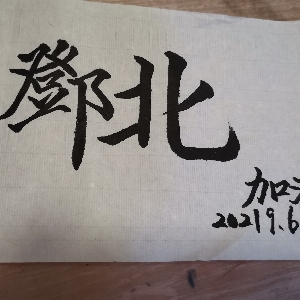 鄧北
加
2021.9.6